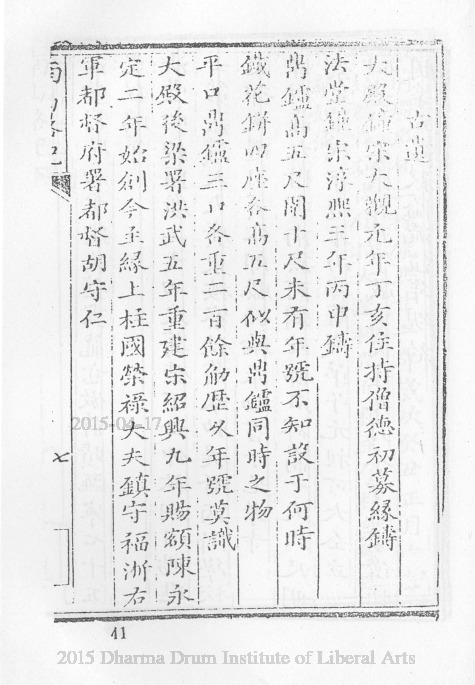 古蹟
大殿鐘宋大觀元年丁亥住持僧德初募緣鑄
法堂鐘宋淳熙三年丙申鑄
鼎鑪高五尺闊十尺未有年號不知設于何時
鐵花缾四座各高五尺似與鼎鑪同時之物
平口鼎鑪三口各重二百餘觔歷久年號莫識
大殿後梁署洪武五年重建宗紹興九年賜額陳永
定二年始創今主緣上柱國榮祿大夫鎮守福浙右
軍都督府署都督胡守仁
2015-04-17
41
2015 Dharma Drum Institute of Liberal Arts